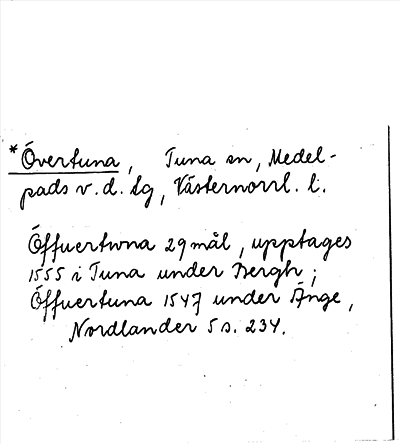 *Övertuna, Tuna sn, Medel-
pads v. d. tg, Västernorrl. l.
Öffuertwna 29 mål, upptages
1555 i Tuna under Bergh;
Öffuertuna 1547 under Ånge,
Nordlander 5 s. 234.